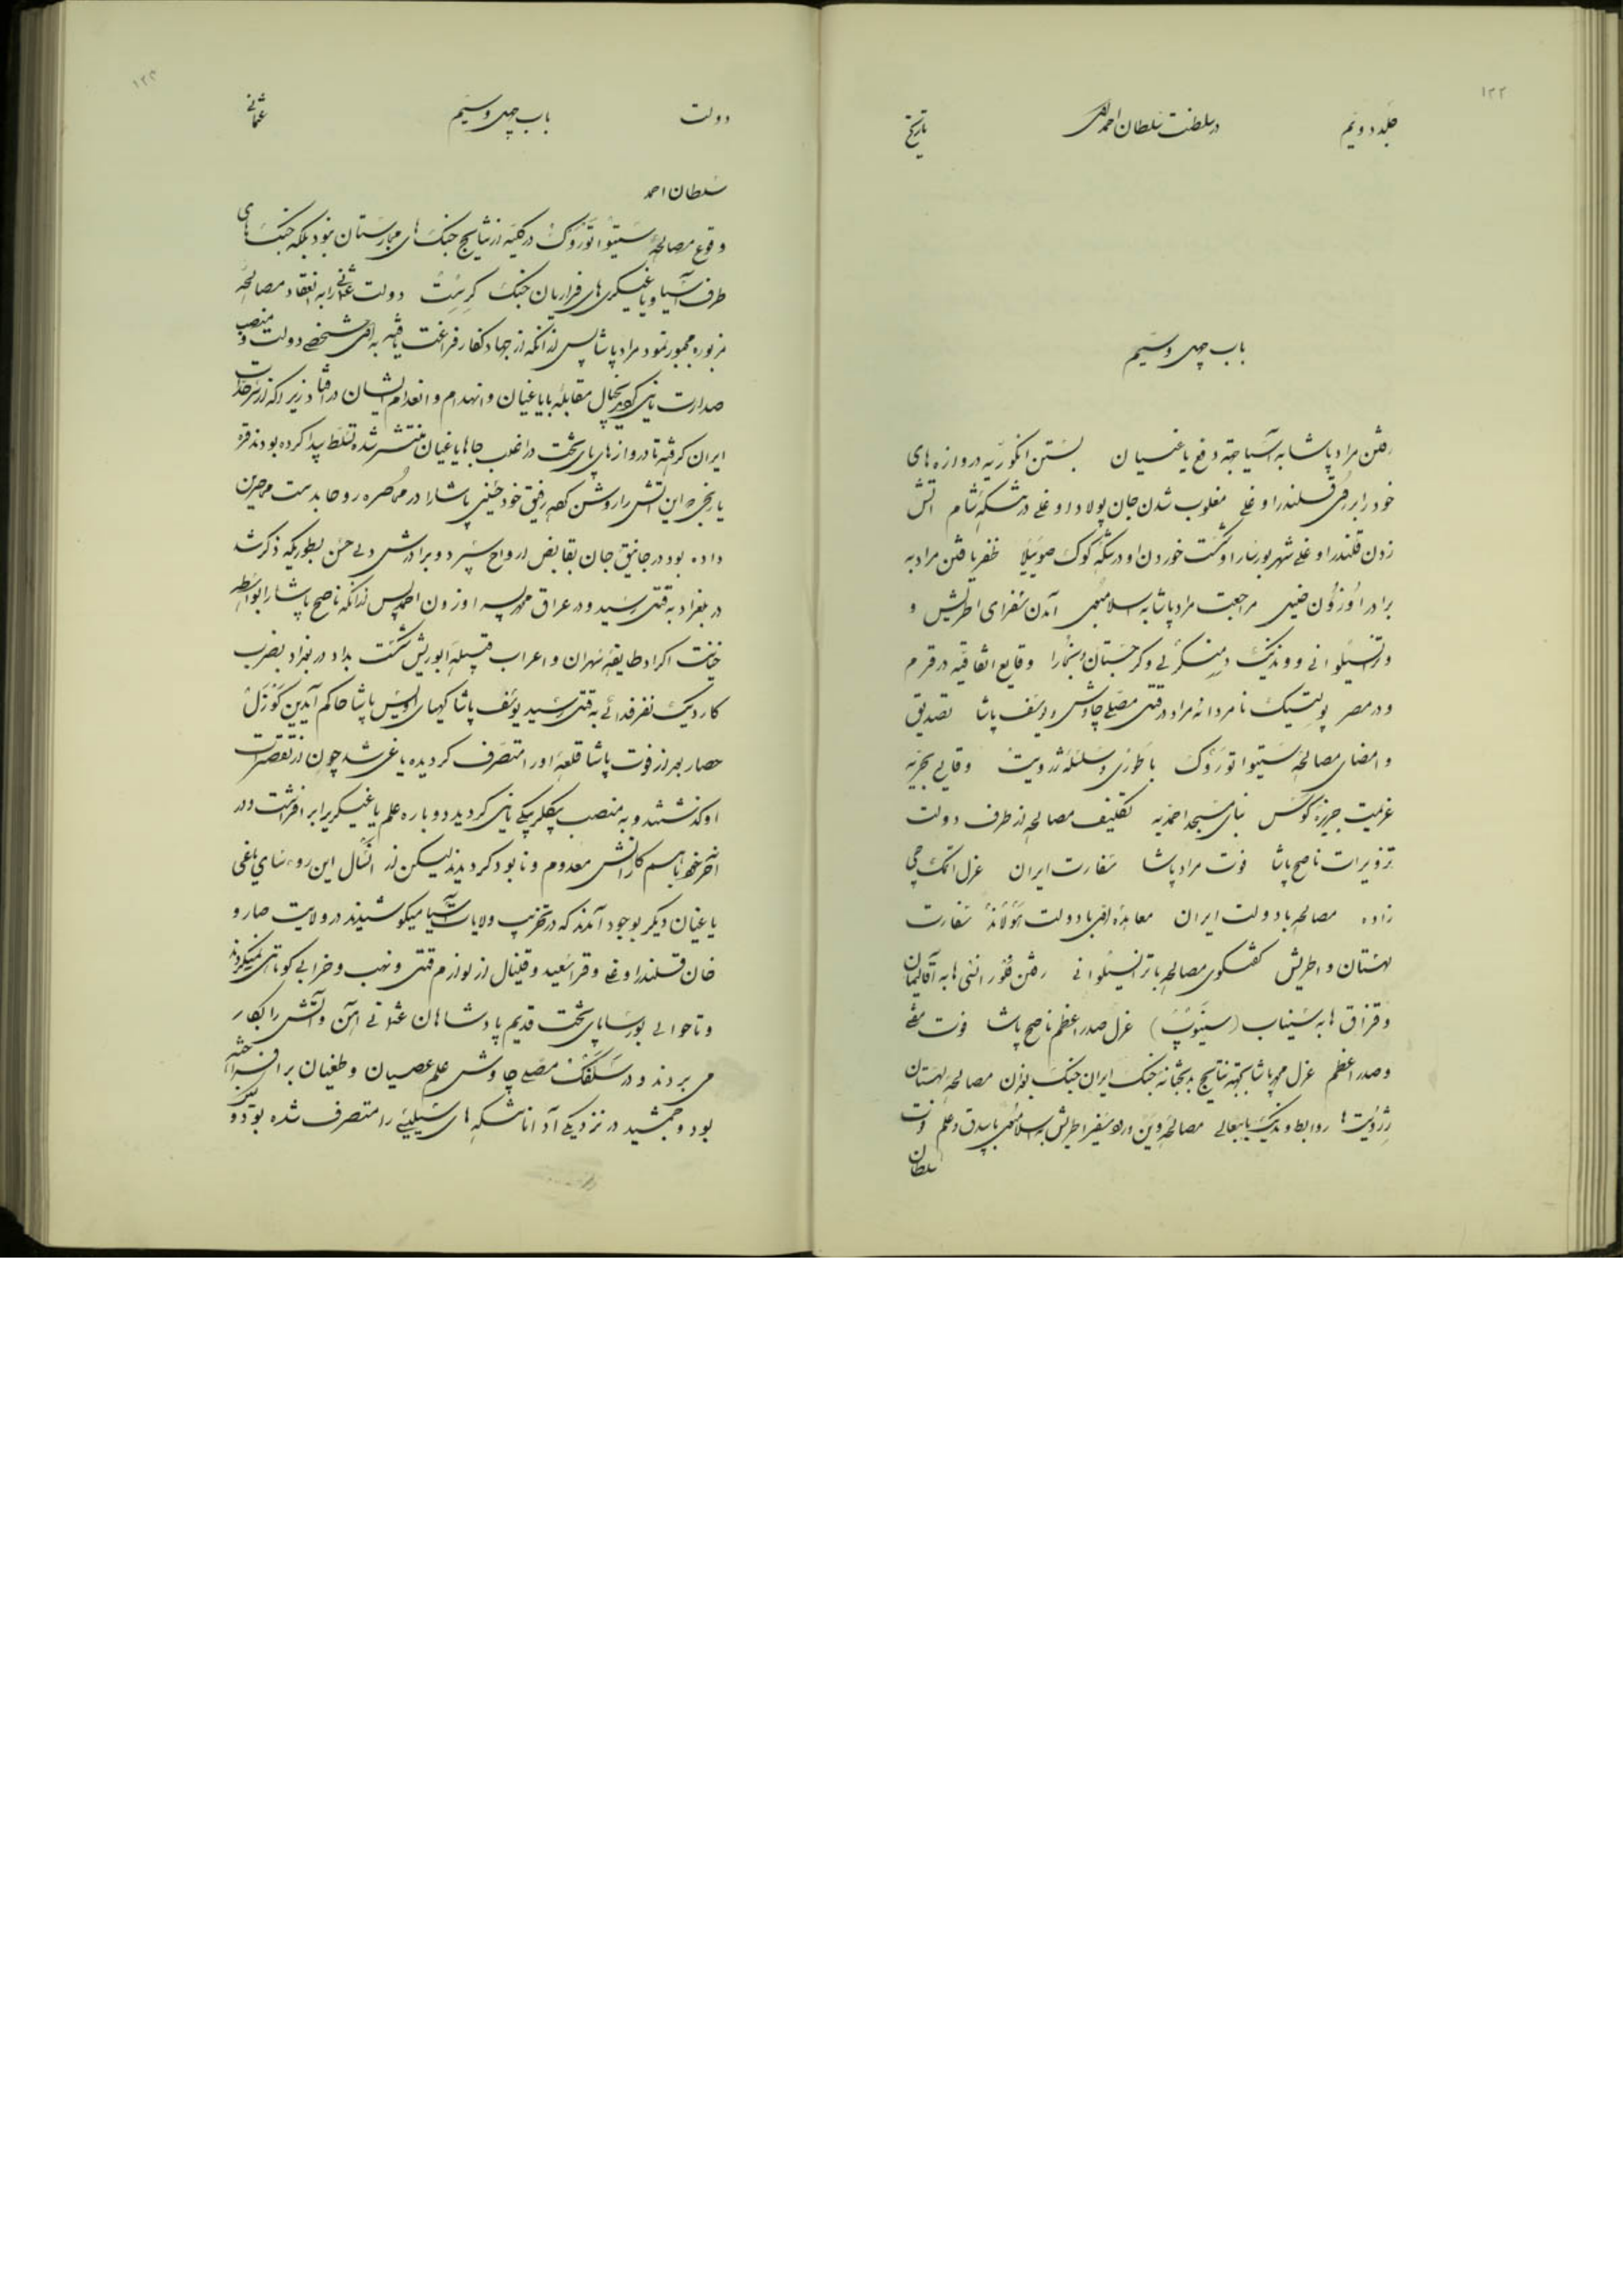 ۱۲۲
جلد دویم در سلطنت سلطان احمد اول تاریخ
باب چهل و سیم
رفتن مراد پاشا به آسیا جهة دفع یاغیان بستن انکوریه دروازه های
خود را بر روی قلندر اوغلی مغلوب شدن جان پولاد اوغلی در تنگهٔ شام آتش
زدن قلندر اوغلی شهر بورسا را و شکست خوردن او در تنگهٔ کوک صویئیلا ظفر یافتن مراد به
برادر اوزون خلیل مراجعت مراد پاشا به اسلامبول آمدن سفرای اطریش و
ترانسیلوانی و وندیک و منکرلی و کرجستان وقایع اتفاقیه در قرم
و در مصر پولتیک نامردانه مراد در قتل مصلی چاوش و یوسف پاشا تصدیق
و امضای مصالحهٔ سیتواتوروک با طوری و سلسلهٔ رودویت وقایع بحریه
عزیمت جزیره کوس بنای مسجد احمدیه تکلیف مصالحه از طرف دولت
تزویرات ناصح پاشا فوت مراد پاشا سفارت ایران عزل اتمک چی
زاده مصالحه با دولت ایران معاهدهٔ اول با دولت هولاند سفارت
لهستان و اطریش گفتگوی مصالحه با ترانسیلوانی رفتن فلورانتی ها به آقالیمان
و قزاق ها به سیناب (سینوپ) عزل صدر اعظم ناصح پاشا فوت مفتی
و صدر اعظم عزل محمد پاشا بجهة نتایج بدبختانه جنک ایران جنک مصالحهٔ لهستان
ژزویت ها روابط وندیک با بابعالی مصالحهٔ وین ورود سفیر اطریش به اسلامبول با بیدق و علم فوت
سلطان
۱۲۳
دولت باب چهل و سیم عثمانی
سلطان احمد
وقوع مصالحهٔ سیتواتوروک در کلیه از نتایج جنک های مجارستان نبود بلکه جنک های
طرف آسیا و یاغیگری های فراریان جنک کرست دولت عثمانی را به انعقاد مصالحهٔ
مزبوره مجبور نمود مراد پاشا پس از آنکه از جهاد کفار فراغت یافته به اول شخصی دولت و منصب
صدارت نایل گردید بخیال مقابلهٔ با یاغیان و انهدام و انعدام ایشان در افتاد زیرا که از سرحدات
ایران گرفته تا دروازهای پای تخت در اغلب جاها یاغیان منتشر شده تسلط پیدا کرده بودند قره
یازیجی این آتش را روشن رفیق خود حسین پاشا را در محاصره روحا بدست محاصرین
داده بود در جانیق جان بقابض ارواح سپرد و برادرش دلی حسن بطوریکه ذکر شد
در بلغراد به قتل رسید و در عراق محمد پسر اوزون احمد پس از آنکه ناصح پاشا را بواسطه
خیانت اکراد طایفهٔ سهران و اعراب قبیلهٔ ابوریش شکست بداد در بغداد بضرب
کارد یک نفر فدائی به قتل رسید یوسف پاشا کهیای اویس پاشا حاکم آیدین کوزل
حصار بعد از فوت پاشا قلعهٔ او را متصرف گردیده یاغی شد چون از تقصیرات
او گذشتند و به منصب بیکلربیکی نایل گردید دوباره علم یاغیگری را بر افراشت و در
آخر معدوم و نابود گردید لیکن از امثال این روسای یاغی
یاغیان دیکر بوجود آمدند که در تخریب ولایات آسیا میکوشیدند در ولایت صارو
خان قلندر اوغلی و قرا سعید و قینال از لوازم قتل و نهب و خرابی کوتاهی نمیکردند
و تا حوالی بورسا پای تخت قدیم پادشاهان عثمانی آهن و آتش را بکار
می بردند و در سلفکه مصلی چاوش علم عصیان و طغیان بر افراخته
بود و جمشید در نزدیکی آدانا تنکه های سیلیسی را متصرف شده بود و